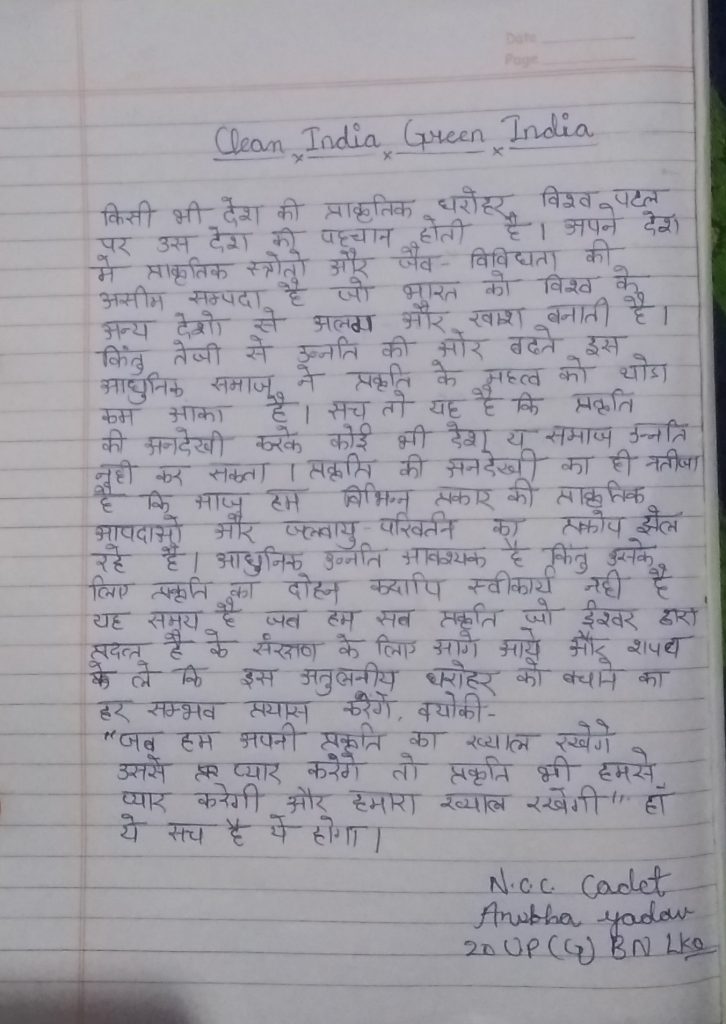 Date
Page
Clean India Green India
किसी भी देश की प्राकृतिक धरोहर विश्व पटल
पर उस देश की पहचान होती है। अपने देश
मे प्राकृतिक स्त्रोतो और जैव-विविधता की
असीम सम्पदा है जो भारत को विश्व के
अन्य देशो से अलग और खाश बनाती है।
किंतु तेजी से उन्नति की ओर बढते इस
आधुनिक समाज ने प्रकृति के महत्व को थोडा
कम आका है। सच तो यह है कि प्रकृति
की अनदेखी करके कोई भी देश य समाज उन्नति
नही कर सकता। प्रकृति की अनदेखी का ही नतीजा
है कि आज हम विभिन्न प्रकार की प्राकृतिक
आपदाओ और जलवायु-परिवर्तन का प्रकोप झेल
रहे है। आधुनिक उन्नति आवश्यक है किंतु उसके
लिए प्रकृति का दोहन कदापि स्वीकार्य नही है
यह समय है जब हम सब प्रकृति जो ईश्वर द्वारा
प्रदत्त है के संरक्षण के लिए आगे आये और शपथ
ले कि इस अतुलनीय धरोहर को बचाने का
हर सम्भव प्रयास करेंगे, क्योकी-
"जब हम अपनी प्रकृति का ख्याल रखेगे
उससे प्यार करेगे तो प्रकृति भी हमसे
प्यार करेगी और हमारा ख्याल रखेगी" हाँ
ये सच है ये होगा।
N.C.C. Cadet
Anubha yadav
20 UP (G) BN LKO